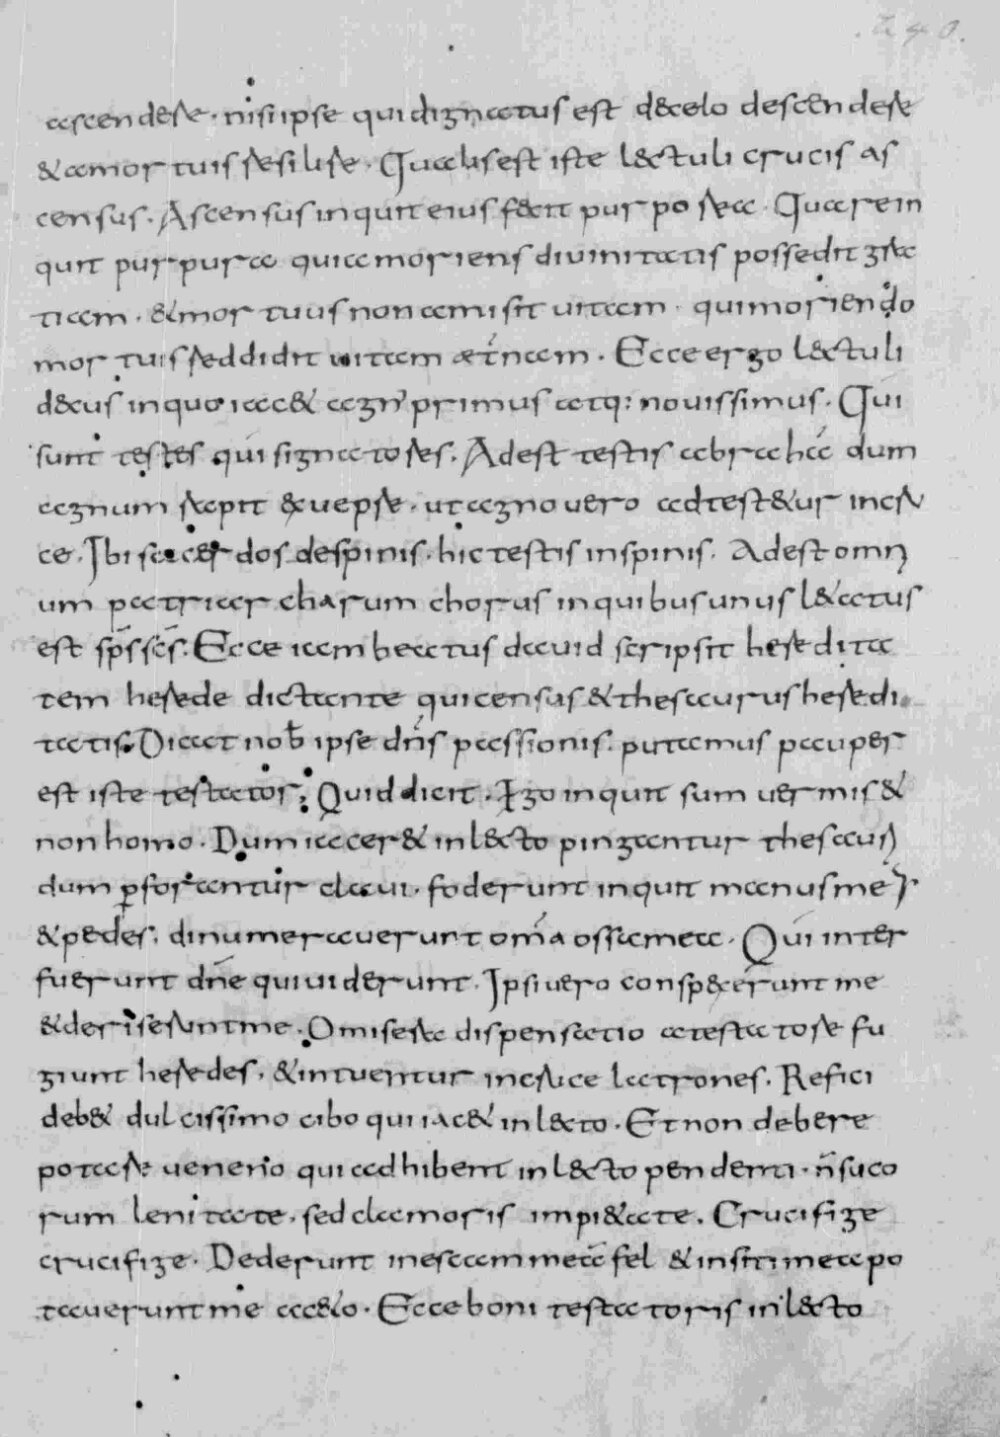 240.
ascendere. nisi ipse qui dignatus est de celo descendere
& a mortuis resilire. Qualis est iste lectuli crucis as
census. Ascensus inquit eius fecit purporea. Quare in
quit purpurea quia moriens divinitatis possedit gra
tiam. & mortuus non amisit vitam. qui moriendo
mortuis reddidit vitam æt̄nam. Ecce ergo lectuli
decus in quo iac& agn' primus atq: novissimus. Qui
sunt testes qui signatores. Adest testis abrahā dum
agnum recpit & vepre. ut agno vero adtest&ur in cru
ce. Ibi sacerdos de spinis. hic testis in spinis. Adest omn
um patriarcharum chorus in quibus unus l&atus
est sp̄s sc̄s. Ecce iam beatus david scripsit heredita
tem herede dictante qui census & thesaurus heredi
tatis. Dicat nob ipse dn̄s passionis. putamus pauper
est iste testator; Quid dicit. Ego inquit sum vermis &
non homo. Dum iacer& in lecto pingantur thesauri
dum ꝑforantur clavi. foderunt inquit manus meas
& pedes; dinumeraverunt om̄a ossa mea. Qui inter
fuerunt dn̄e qui viderunt. Ipsi vero conspexerunt me
& deriserunt me. O misera dispensatio a testatore fu
giunt heredes. & intuentur in cruce latrones. Refici
deb& dulcissimo cibo qui iac& in lecto. Et non debere
potare veneno qui adhibent in lecto pendenti. n̄ suco
rum lenitate. sed clamoris impi&ate. Crucifige
crucifige. Dederunt in escam meā fel & in siti mea po
taverunt me aceto. Ecce boni testatoris in lecto